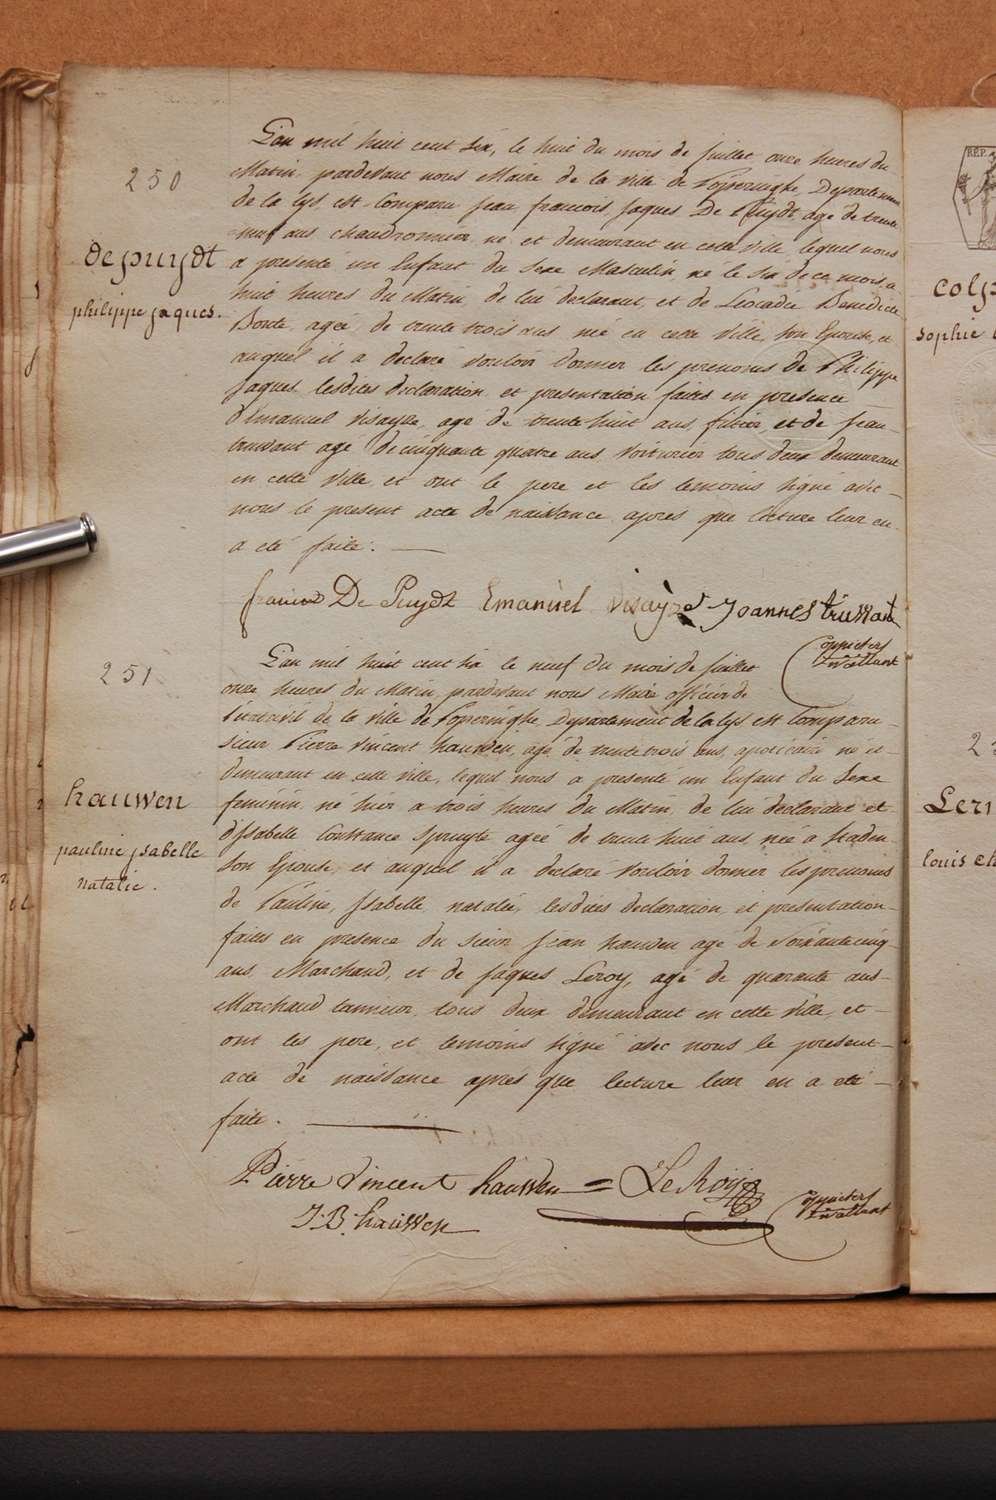 250
depuydt
philippe jaques.
L'an mil huit cent six, le huit du mois de juillet onze heures du
Matin, pardevant nous Maire de la ville de Poperinghe, Departement
de la Lys, est comparu jean françois jaques De Puydt agé de trente
neuf ans chaudronnier, né et demeurant en cette ville lequel nous
a presenté un Enfant du Sexe Masculin né le six de ce mois, a
huit heures du Matin de lui declarant et de Leocadie Benedicte
Bonte, agée de trente trois ans née en cette ville, son Epouse, et
auquel il a declaré vouloir donner les prenoms de Philippe
jaques lesdites declaration et presentation faites en presence
d'emanuel visayze, agé de trente huit ans, et de jean
truwant agé de cinquante quatre ans voiturier tous deux demeurant
en cette ville, et ont le pere et les temoins signé avec
nous le present acte de naissance apres que lecture leur en
a eté faite.
francois De Puydt Emanuel visayze Joannes truwant
251
hauwen
pauline jsabelle
natalie.
L'an mil huit cent six le neuf du mois de juillet
onze heures du Matin, pardevant nous Maire officier de
l'etat civil de la ville de Poperinghe, Departement de la Lys est comparu
sieur Pierre Vincent hauwen, agé de trente trois ans, apoticaire né et
demeurant en cette ville, lequel nous a presenté un Enfant du Sexe
feminin né hier a trois heures du Matin de lui declarant et
d'Jsabelle Constance Spruyte agée de trente huit ans, née a staden
son Epouse, et auquel il a declaré vouloir donner les prenoms
de Pauline, Jsabelle, natalie, lesdites declaration et presentation
faites en presence du sieur jean hauwen agé de soixante cinq
ans, Marchand, et de jaques Leroy, agé de quarante ans
Marchand tanneur, tous deux demeurant en cette ville, et
ont les pere, et temoins signé avec nous le present
acte de naissance aprés que lecture leur en a eté
faite.
Pierre Vincent hauwen = Le Roy
J:B: hauwen
REP
colp
sophie
Lern
louis ch